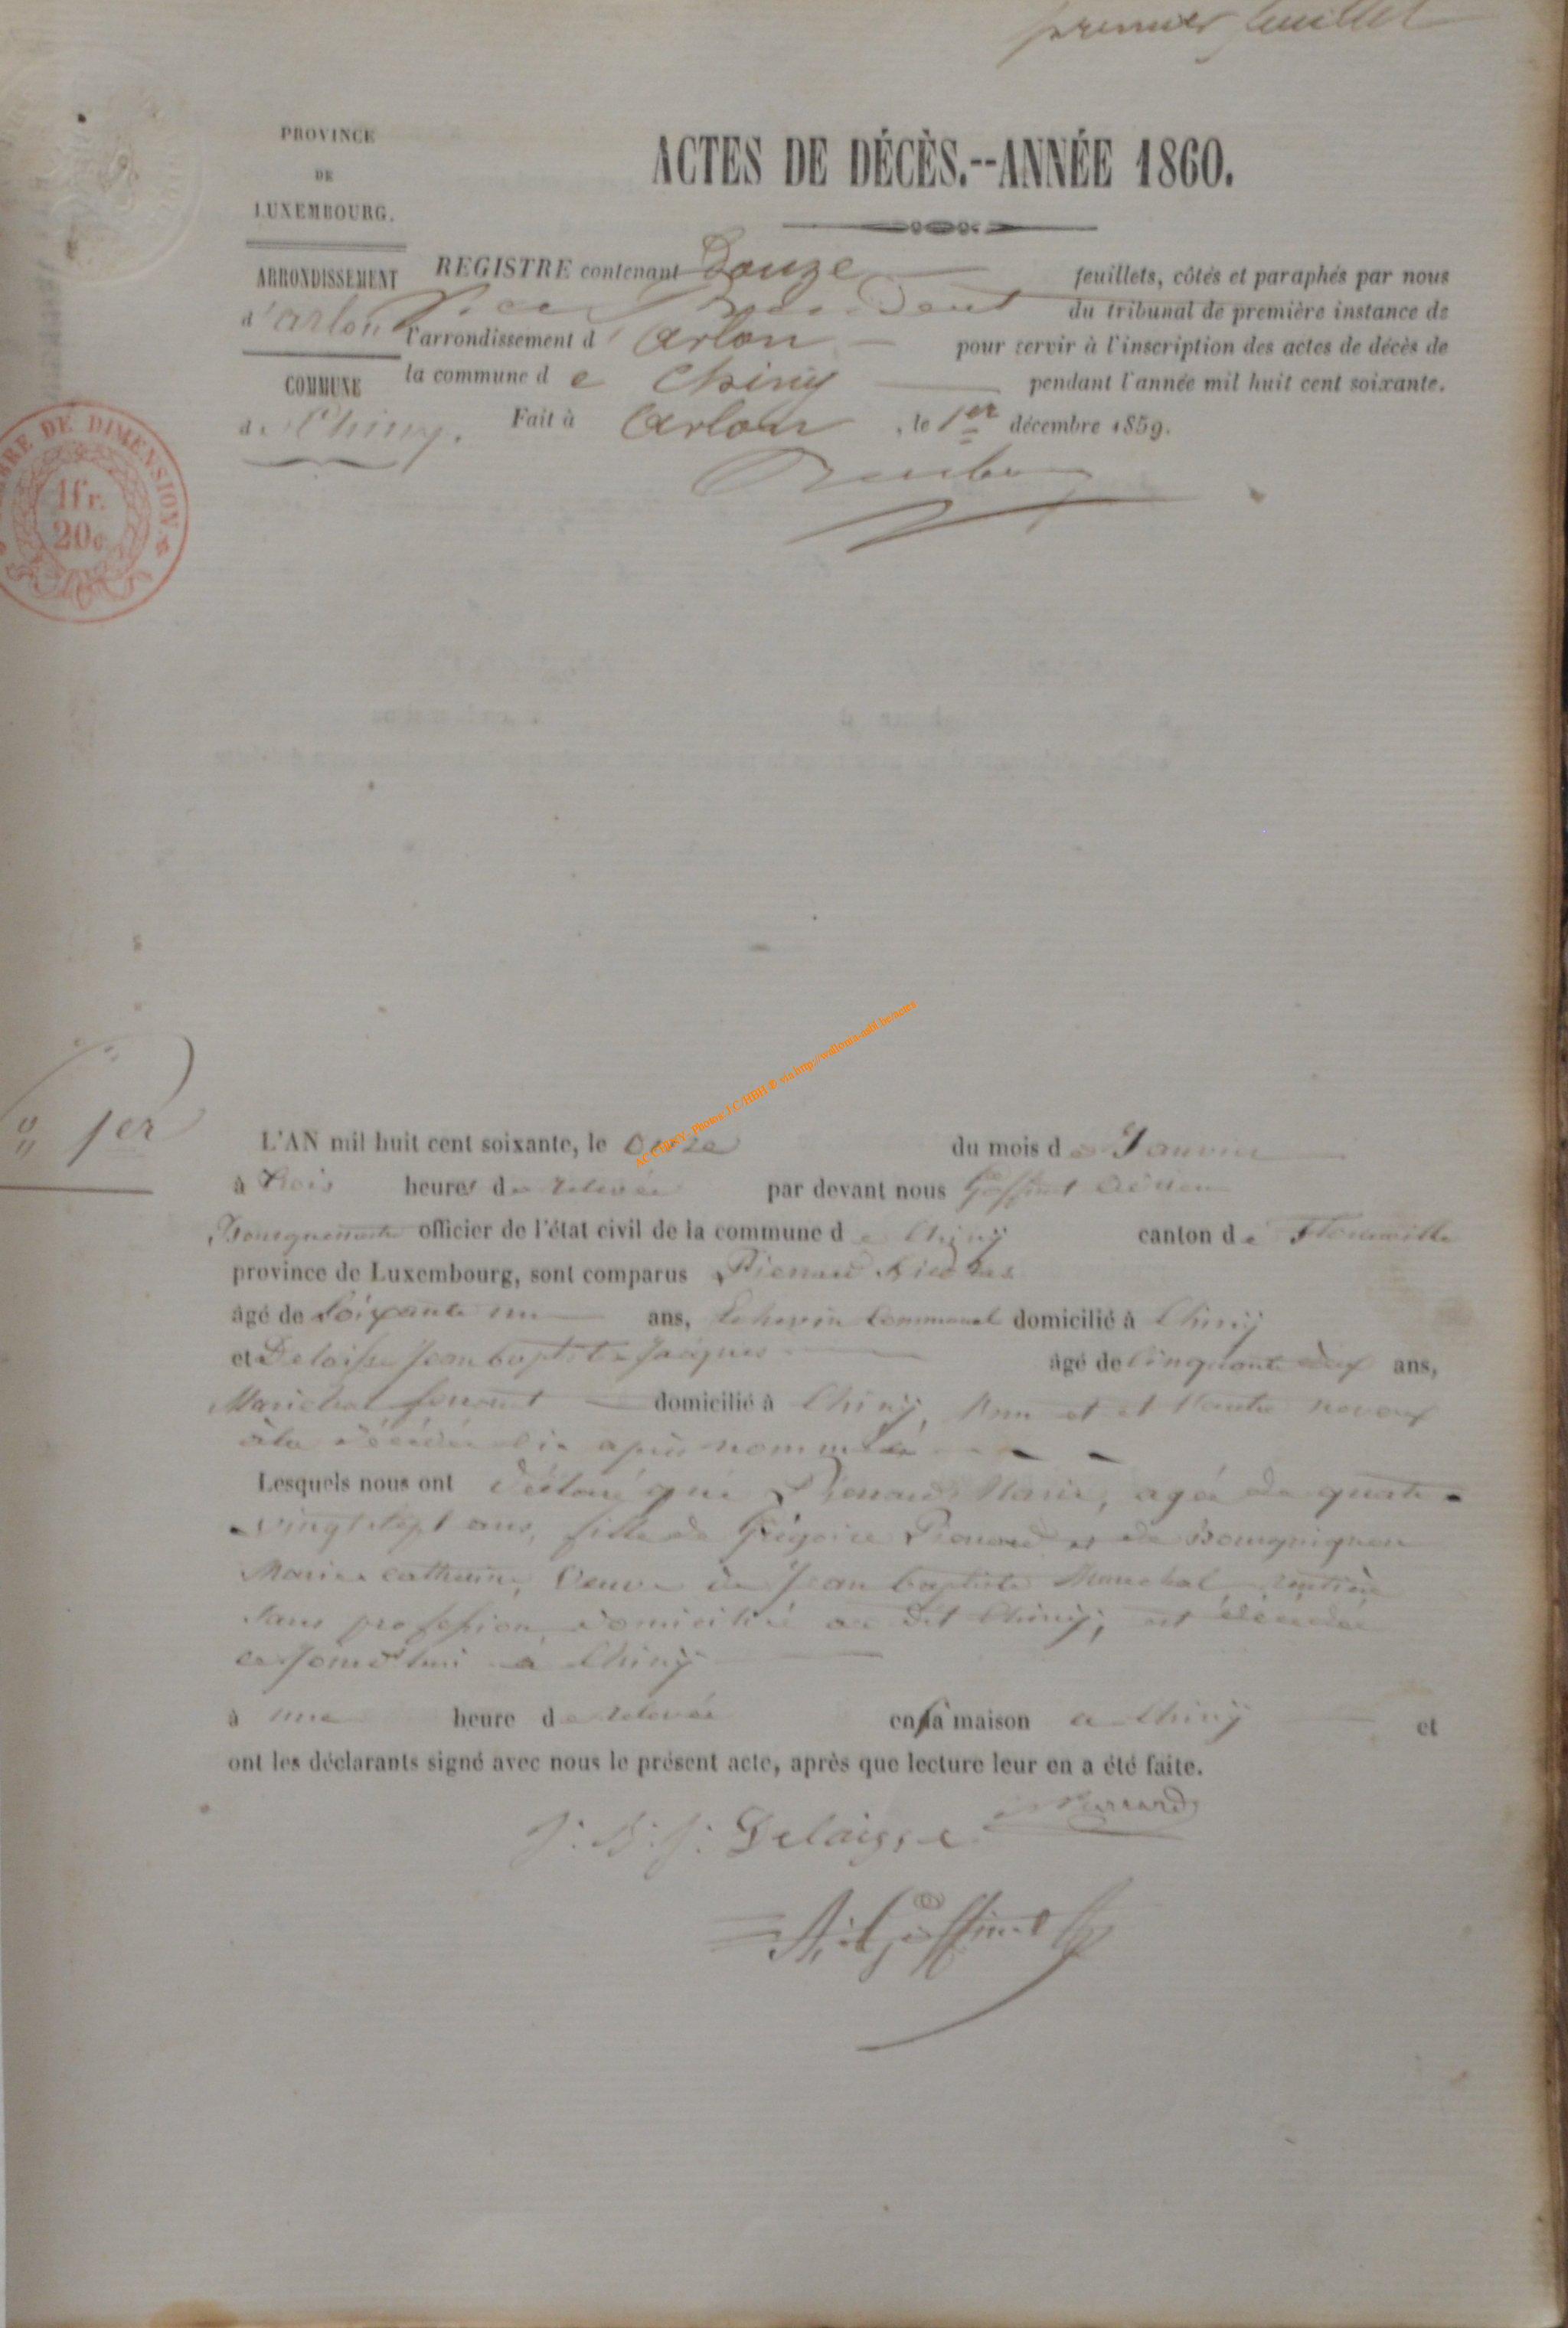 premier feuillet
PROVINCE
DE
LUXEMBOURG.
ARRONDISSEMENT
d'arlon
COMMUNE
de Chiny.
ACTES DE DÉCÈS.--ANNÉE 1860.
REGISTRE contenant Douze feuillets, côtés et paraphés par nous
du tribunal de première instance de
l'arrondissement d' Arlon pour servir à l'inscription des actes de décès de
la commune de Chiny pendant l'année mil huit cent soixante.
Fait à Arlon, le 1er décembre 1859.
TIMBRE DE DIMENSION
1fr.
20c
1er
L'AN mil huit cent soixante, le onze du mois de Janvier
à trois heures de relevée par devant nous Goffinet
officier de l'état civil de la commune de Chiny canton de Florenville
province de Luxembourg, sont comparus Pierrard Nicolas
âgé de soixante un ans, Echevin communal domicilié à Chiny
et Delaisse Jean baptiste Jacques âgé de cinquante ans,
Marechal ferrant domicilié à Chiny, et neveux
à la décédée ci après nommée
Lesquels nous ont déclaré que Pierrard Marie, agée de quatre
vingt sept ans, fille de Grégoire Pierrard et de Bourguignon
Marie catherine, Veuve de Jean baptiste Marechal
sans profession, domiciliée au dit Chiny, est décédée
ce jourd'hui à Chiny
à une heure de relevée en sa maison à Chiny et
ont les déclarants signé avec nous le présent acte, après que lecture leur en a été faite.
Pierrard
J. B. J. Delaisse
A. Goffinet